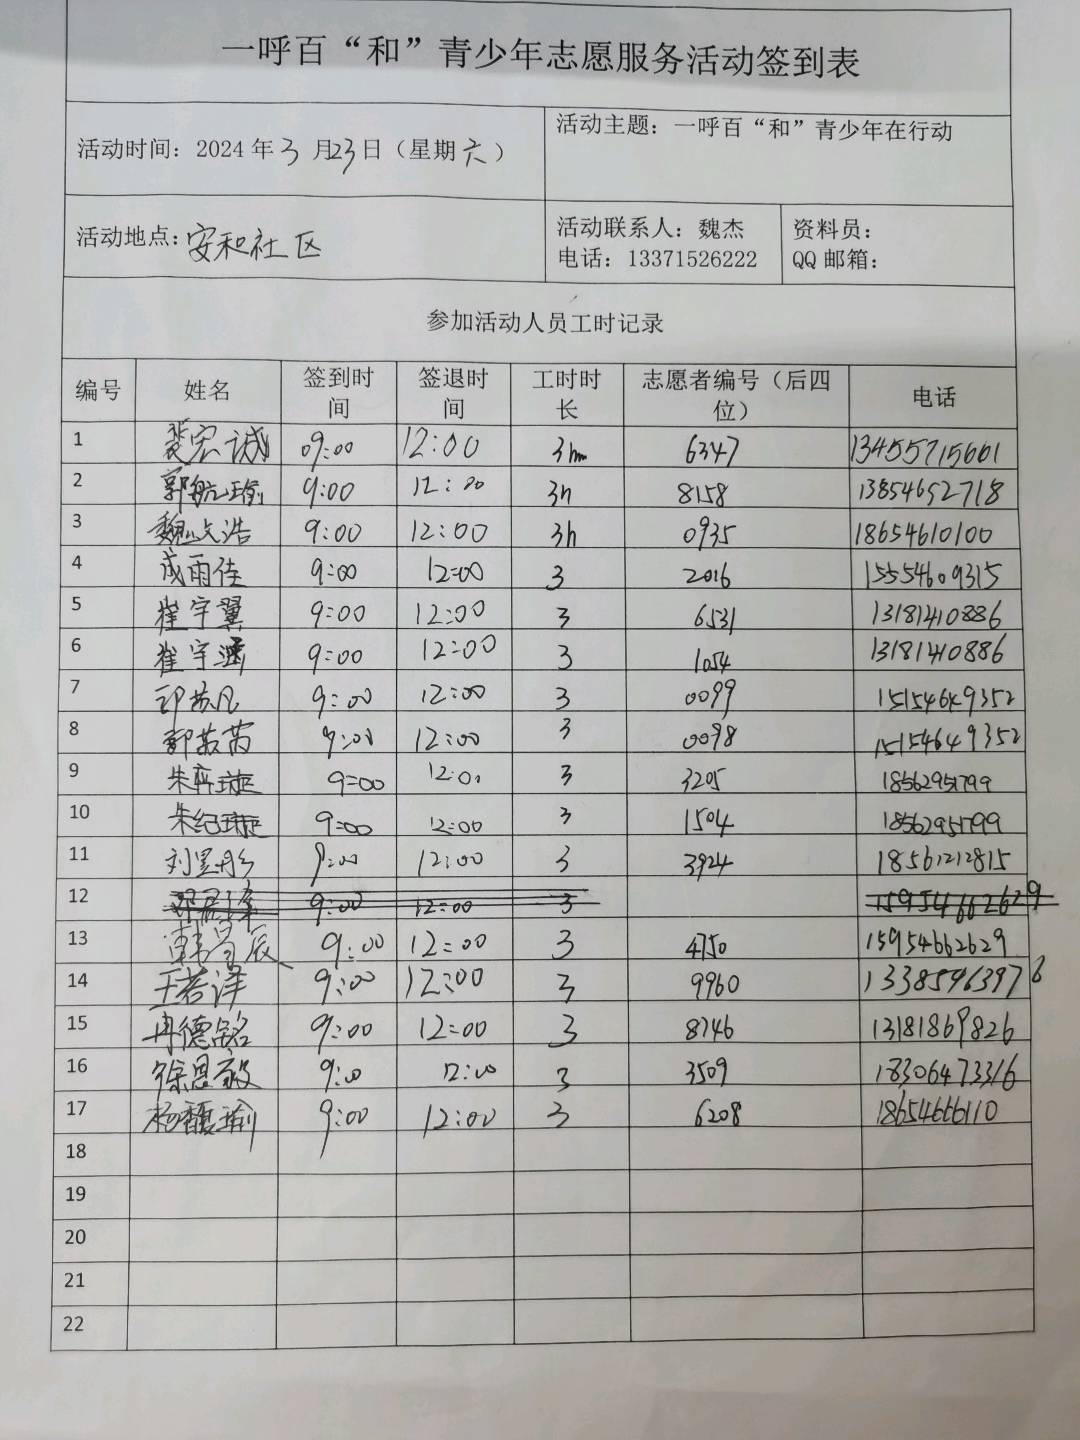 一呼百“和”青少年志愿服务活动签到表
活动时间：2024年3月23日（星期六）
活动主题：一呼百“和”青少年在行动
活动地点：安和社区
活动联系人：魏杰
电话：13371526222
资料员：
QQ邮箱：
参加活动人员工时记录
编号 姓名 签到时间 签退时间 工时时长 志愿者编号（后四位） 电话
1 裴宏诚 09:00 12:00 3h 6347 13455715661
2 郭航瑜 9:00 12:00 3h 8158 13854652718
3 魏文浩 9:00 12:00 3h 0935 18654610100
4 成雨佳 9:00 12:00 3 2016 15554609315
5 崔宇翼 9:00 12:00 3 6531 13181410886
6 崔宇涵 9:00 12:00 3 1054 13181410886
7 苏凡 9:00 12:00 3 0099 15154649352
8 苏芮 9:00 12:00 3 0098 15154649352
9 朱弈琁 9:00 12:00 3 3205 18562951799
10 朱纪琁 9:00 12:00 3 1504 18562951799
11 刘昱彤 9:00 12:00 3 3924 18561212815
12 9:00 12:00 3 15954662629
13 韩昊辰 9:00 12:00 3 4750 15954662629
14 王若洋 9:00 12:00 3 9960 13385463976
15 冉德铭 9:00 12:00 3 8746 13181869826
16 徐恩毅 9:00 12:00 3 3509 18306473316
17 杨馥瑜 9:00 12:00 3 6208 18654666110
18
19
20
21
22